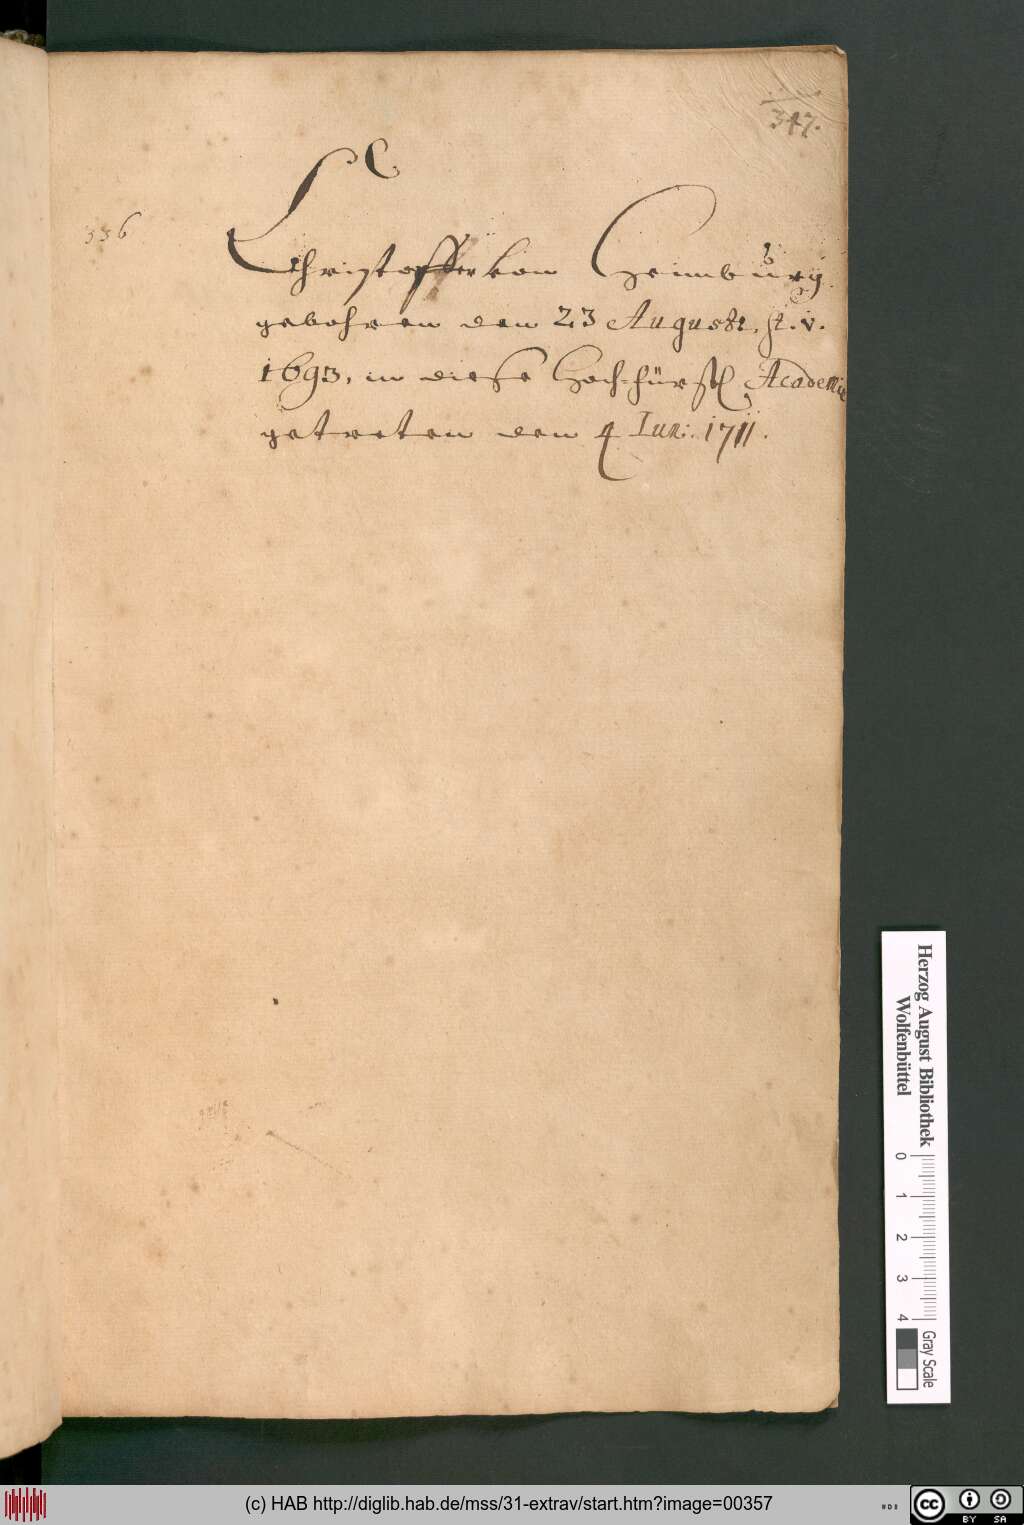 347.
336
Christoffer von Heimburg
gebohren den 23 Augusti, st. v.
1693, in diese Hoch-fürstl Academie
getreten den 4 Iun: 1711.
Herzog August Bibliothek
Wolfenbüttel
0 1 2 3 4
Gray Scale
(c) HAB http://diglib.hab.de/mss/31-extrav/start.htm?image=00357
cc BY SA